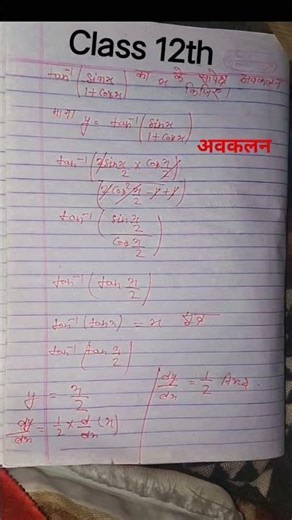 Class 12th
tan⁻¹ (sinx / 1+cosx) का x के सापेक्ष अवकलन
कीजिए।
माना y = tan⁻¹ (sinx / 1+cosx)
अवकलन
tan⁻¹ (2sin x/2 × cos x/2)
(2cos² x/2 - 1 + 1)
tan⁻¹ (sin x/2 / cos x/2)
tan⁻¹ (tan x/2)
tan⁻¹ (tanx) = x सूत्र
tan⁻¹ (tan x/2)
y = x/2
dy/dx = 1/2 × d/dx (x)
dy/dx = 1/2 Ans.